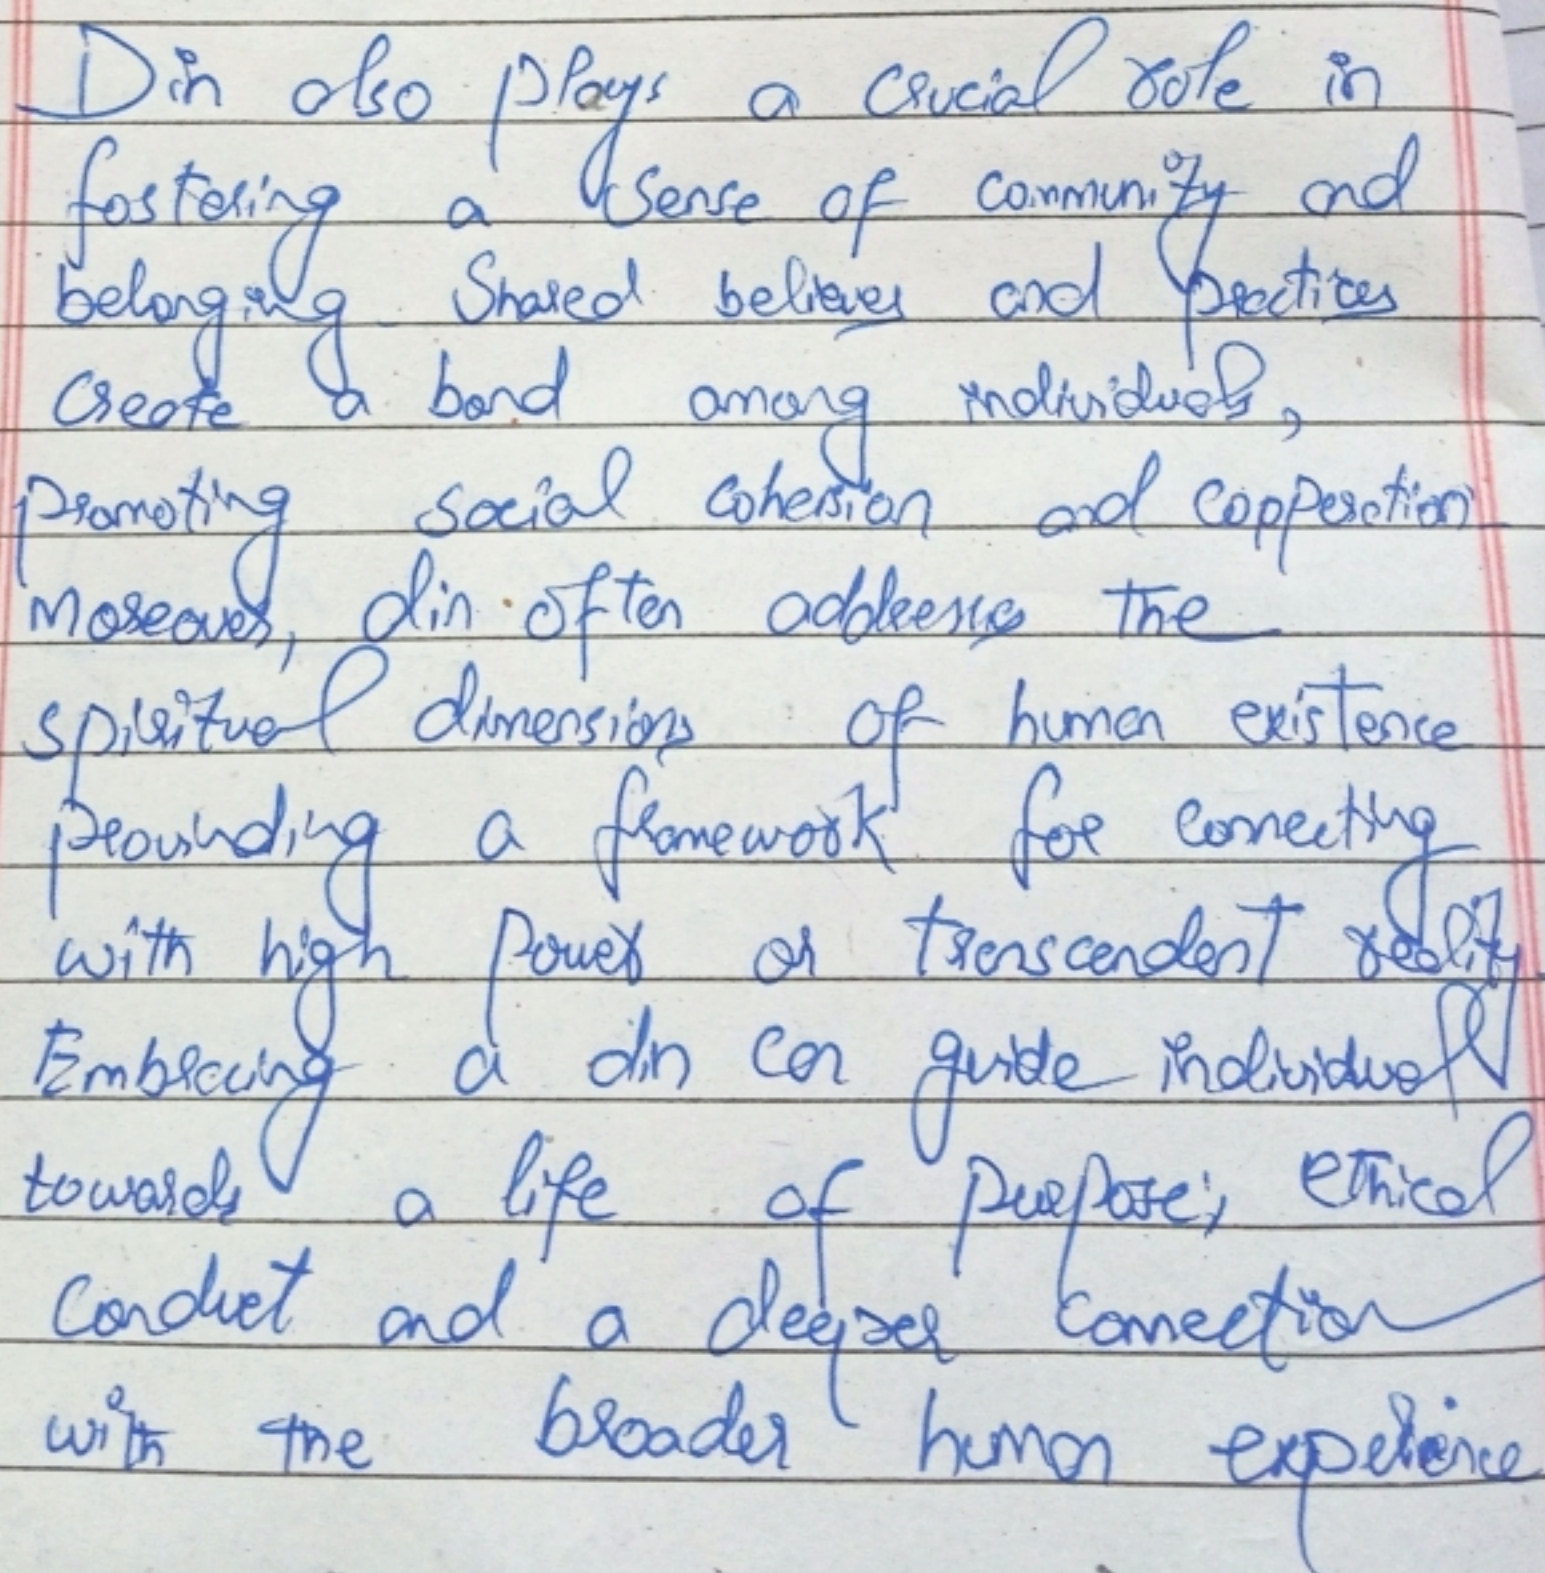 Din also plays a crucial role in
fostering a sense of community and
belonging. Shared believes and practices
create a bond among individuals,
promoting social cohension and copperation
Moreover, din often addresses the
spiritual dimensions of human existence
provinding a framework for connecting
with high power or transcendent reality
Embracing a din can guide individual
towards a life of purpose, ethical
conduct and a deeper connection
with the broader human experience